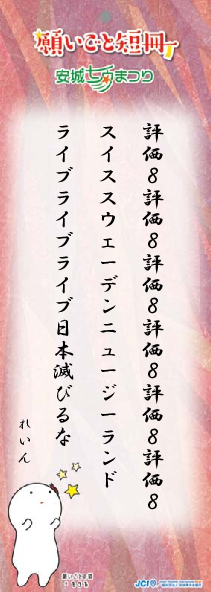 願いごと短冊
安城七夕まつり
評価8評価8評価8評価8評価8評価8
スイススウェーデンニュージーランド
ライブライブライブ日本滅びるな
れいん
願いごと短冊
JCI